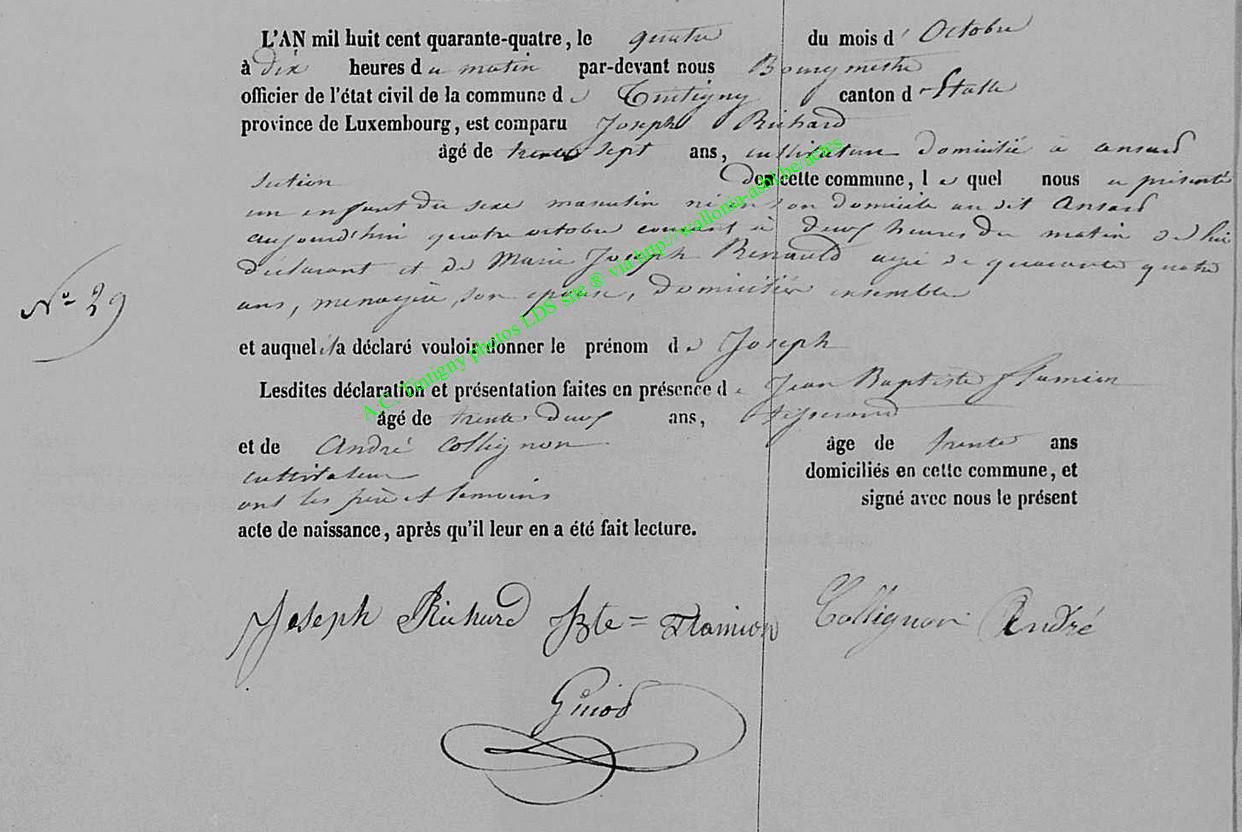 L'AN mil huit cent quarante-quatre, le quatre du mois d' Octobre
à dix heures du matin par-devant nous Bourgmestre
officier de l'état civil de la commune de Tintigny canton d'Etalle
province de Luxembourg, est comparu Joseph Richard
âgé de trente sept ans, cultivateur domicilié à ansart
section de cette commune, lequel nous a présenté
un enfant du sexe masculin né en son domicile au dit Ansart
aujourd'hui quatre octobre courant à deux heures du matin de lui
déclarant et de Marie Joseph Renauld agée de quarante quatre
ans, menagère, son epouse, domiciliés ensemble
N° 29
et auquel il a déclaré vouloir donner le prénom de Joseph
Lesdites déclaration et présentation faites en présence de Jean Baptiste flamion
âgé de trente deux ans, tisserand
et de André Collignon âge de trente ans
cultivateur domiciliés en cette commune, et
ont les père et temoins signé avec nous le présent
acte de naissance, après qu'il leur en a été fait lecture.
Joseph Richard JBte = Flamion Collignon André
A.C. Tintigny photos LDS site ® via http://wallonia-asbl.be/actes